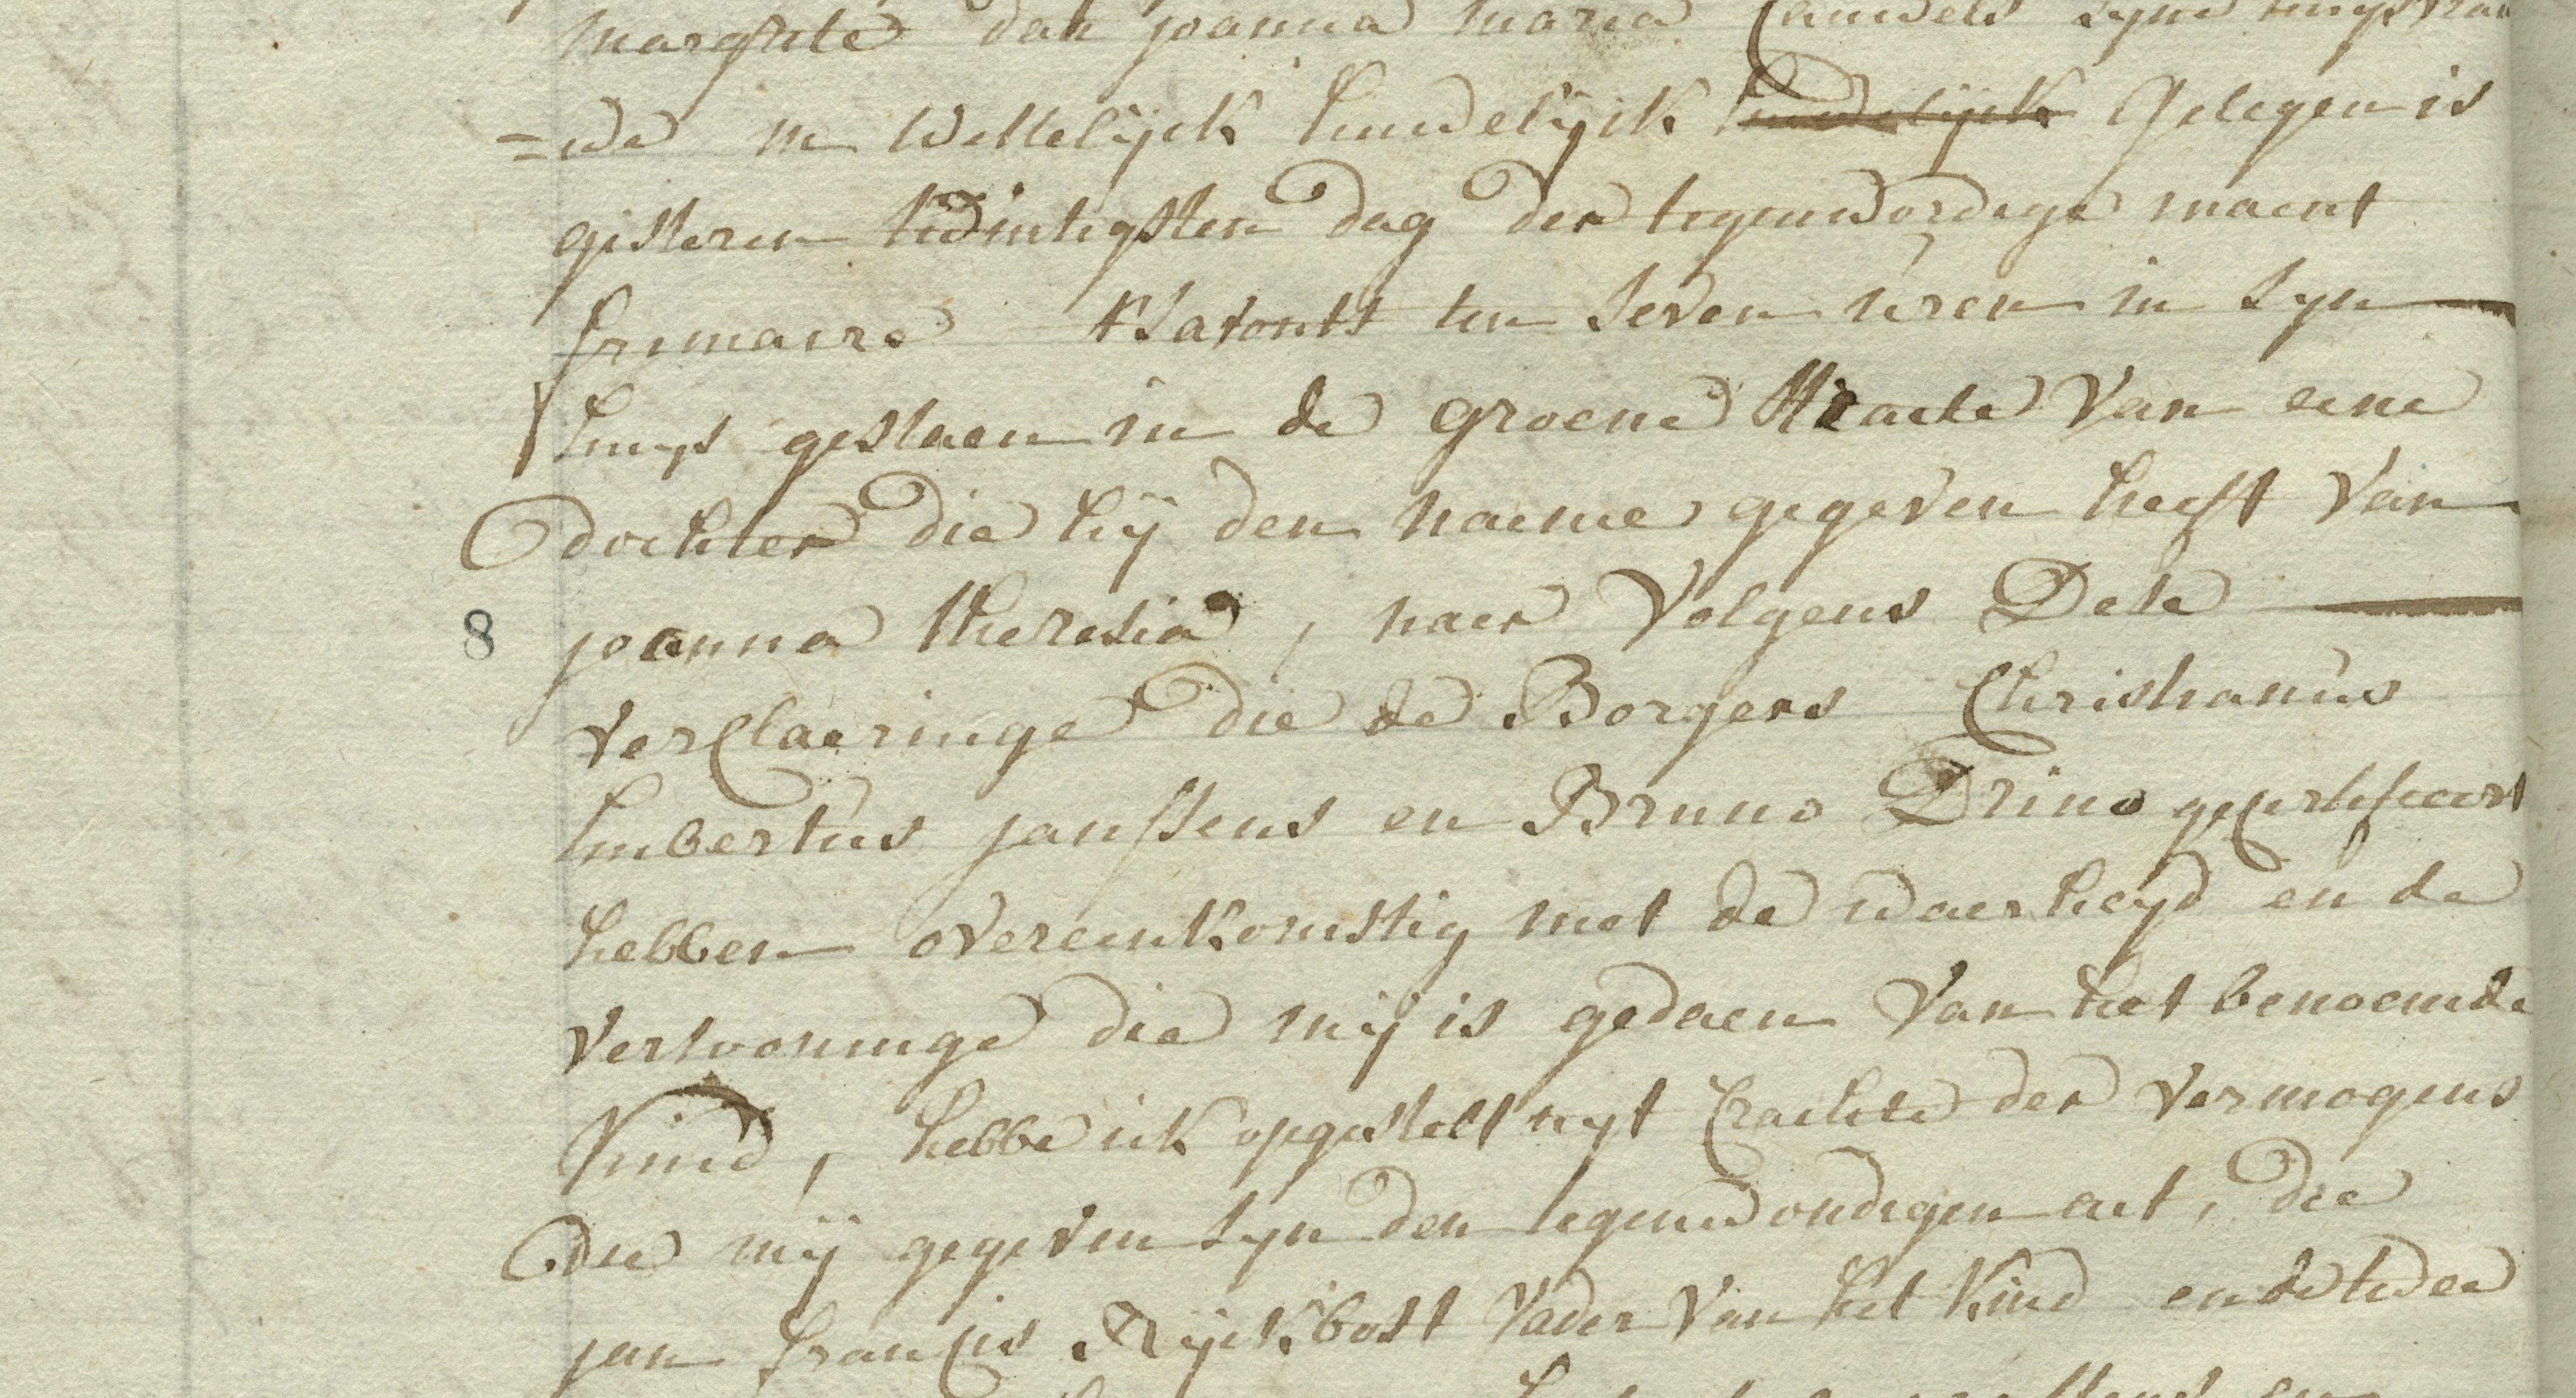 dan joanna maria Cauwels syne huysvrau
=we in wettelijck huwelijck huwelijck Gelegen is
gisteren twintigsten dag der tegenwordige maent
frimaire s'avonts ten seven uren in syn
huys gestaen in de groene straete Van eene
dochter die hij den naeme gegeven heeft Van
8 joanna theresia, naer Volgens Dese
verClaeringe die de Borgers Christianus
huibertus janssens en Bruno Drino geCertifieert
hebben overeenkomstig met de waerheyd en de
vertooninge die mij is gedaen Van het benoemde
Kind, hebbe ick opgestelt uyt Crachte der vermogens
die mij gegeven syn den tegenwoordigen act, die
jan franCis Rijckbost Vader Van het Kind en de twee